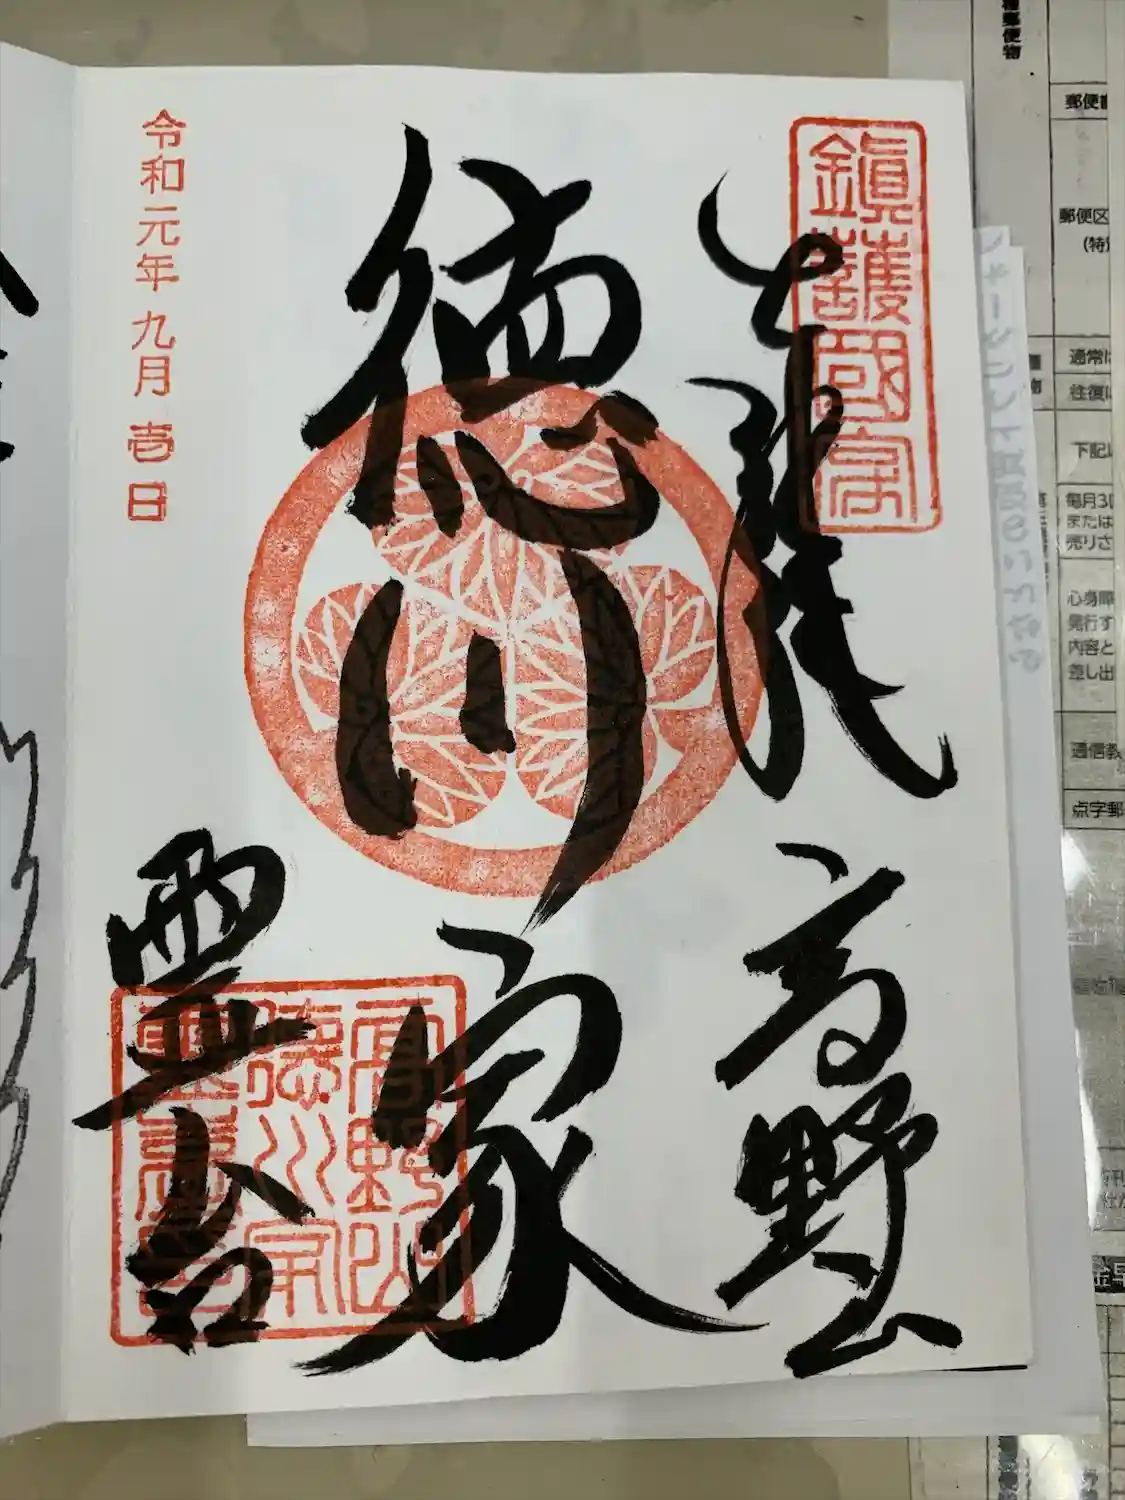 奉拝
高野山
鎮護國家
徳川家
霊台
高野山
徳川家
霊臺
令和元年九月壱日
種郵便物
郵便
郵便区
(特
通常
往復
下記
毎月3
または
売りさ
心身障
発行す
内容と
差し出
通信教
点字郵